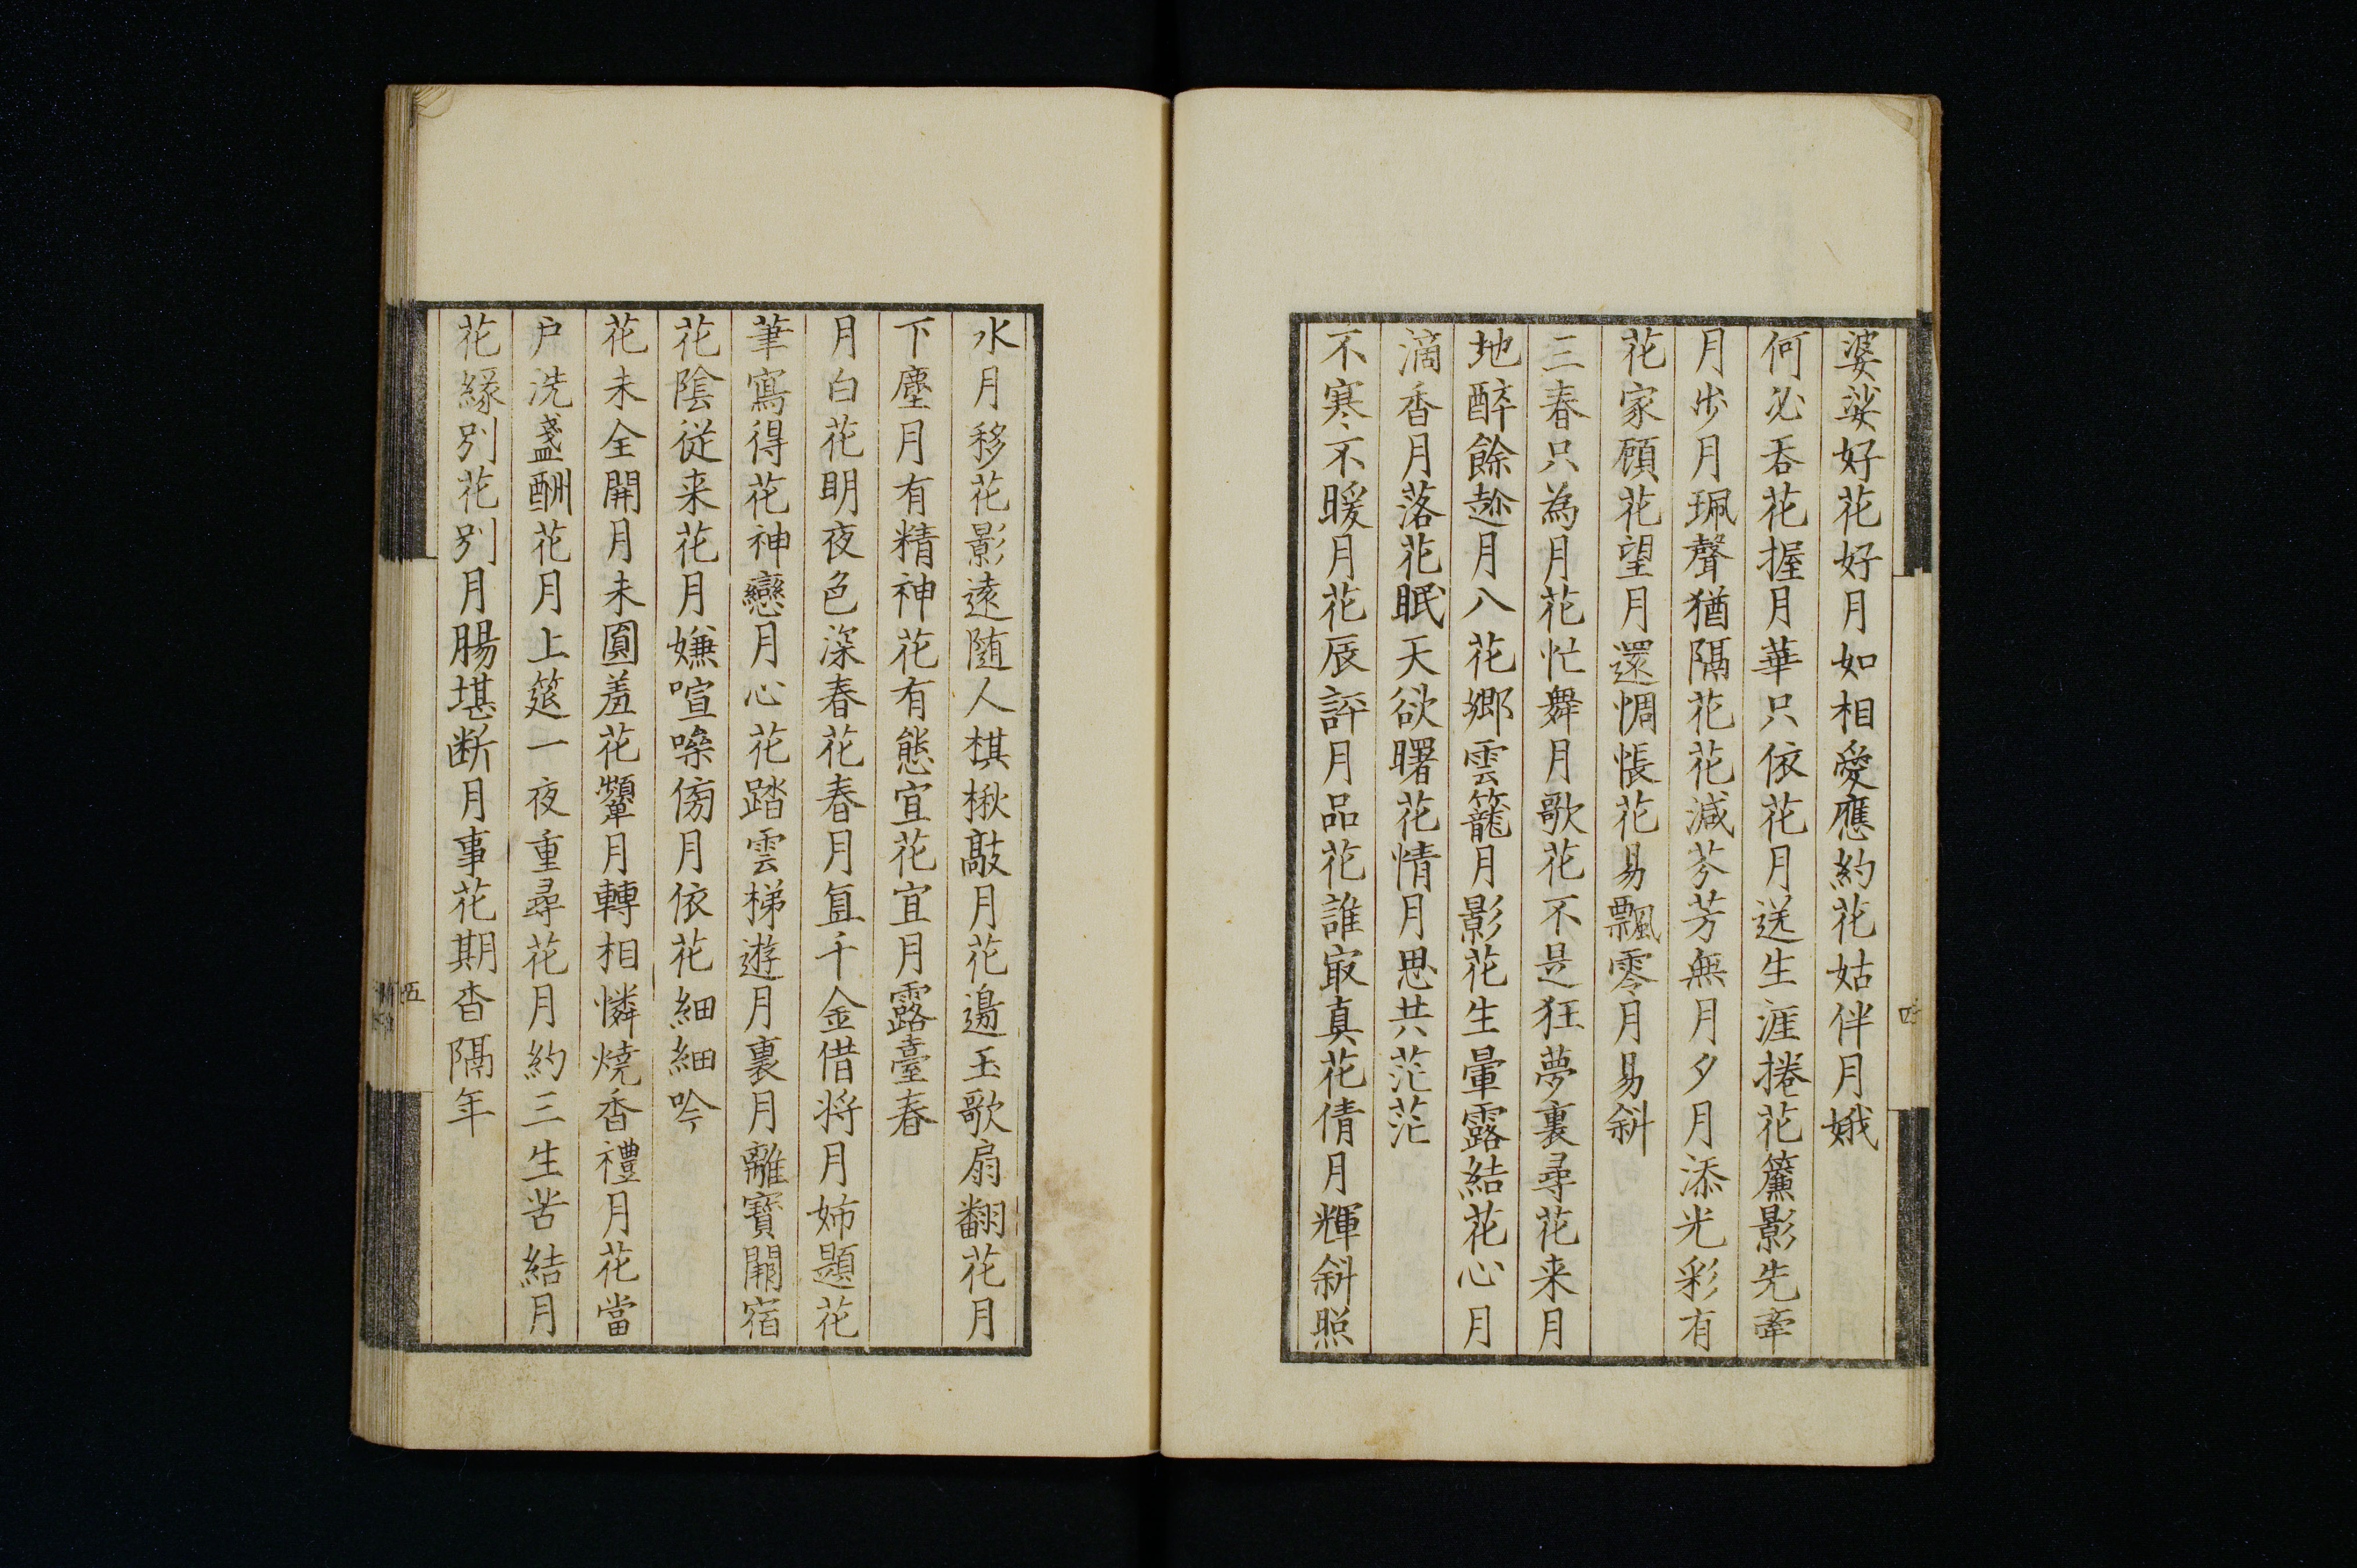 婆娑好花好月如相愛應約花姑伴月娥
何必吞花握月華只依花月送生涯捲花簾影先牽
月步月珮聲猶隔花花減芬芳無月夕月添光彩有
花家顧花望月還惆悵花易飄零月易斜
三春只為月花忙舞月歌花不是狂夢裏尋花来月
地醉餘趂月八花鄉雲籠月影花生暈露結花心月
滴香月落花眠天欲曙花情月思共茫茫
不寒不暖月花辰評月品花誰㝡真花倩月輝斜照
水月移花影遠随人棋楸敲月花邊玉歌扇翻花月
下塵月有精神花有態宜花宜月露臺春
月白花明夜色深春花春月直千金借将月姊題花
筆寫得花神戀月心花踏雲梯遊月裏月離寳闕宿
花陰從来花月嫌喧噪傍月依花細細吟
花未全開月未圓羞花顰月轉相憐燒香禮月花當
户洗盞酬花月上筵一夜重尋花月約三生苦結月
花緣别花别月腸堪断月事花期杳隔年
四
五